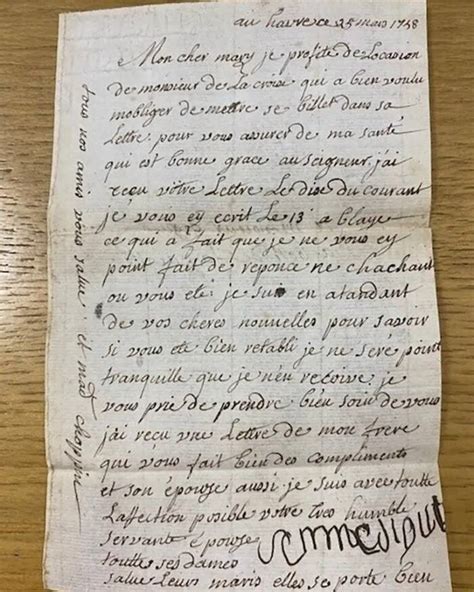 au havre ce 25 mars 1758
Mon cher mary je profite de Locasion
de monsieur de La croix qui a bien voulu
mobliger de mettre se billet dans sa
Lettre pour vous assurer de ma santé
qui est bonne grace au seigneur j'ai
reçu vôtre Lettre Le dixe du courant
je vous ey ecrit Le 13 a blaye
ce qui a fait que je ne vous ey
point fait de reponce ne chachant
ou vous eté je suis en atandant
de vos cheres nouvelles pour savoir
si vous ete bien retabli je ne seré pointe
tranquille que je n'en recoive je
vous prie de prendre bien soin de vous
j'ai recu une Lettre de mon frere
qui vous fait bien des compliments
et son épouze aussi je suis avec toutte
Laffection posible votre tres humble
servante épouze
toutte ses dames
salue Leurs maris elles se porte bien
tous nos amis vous salue et mad